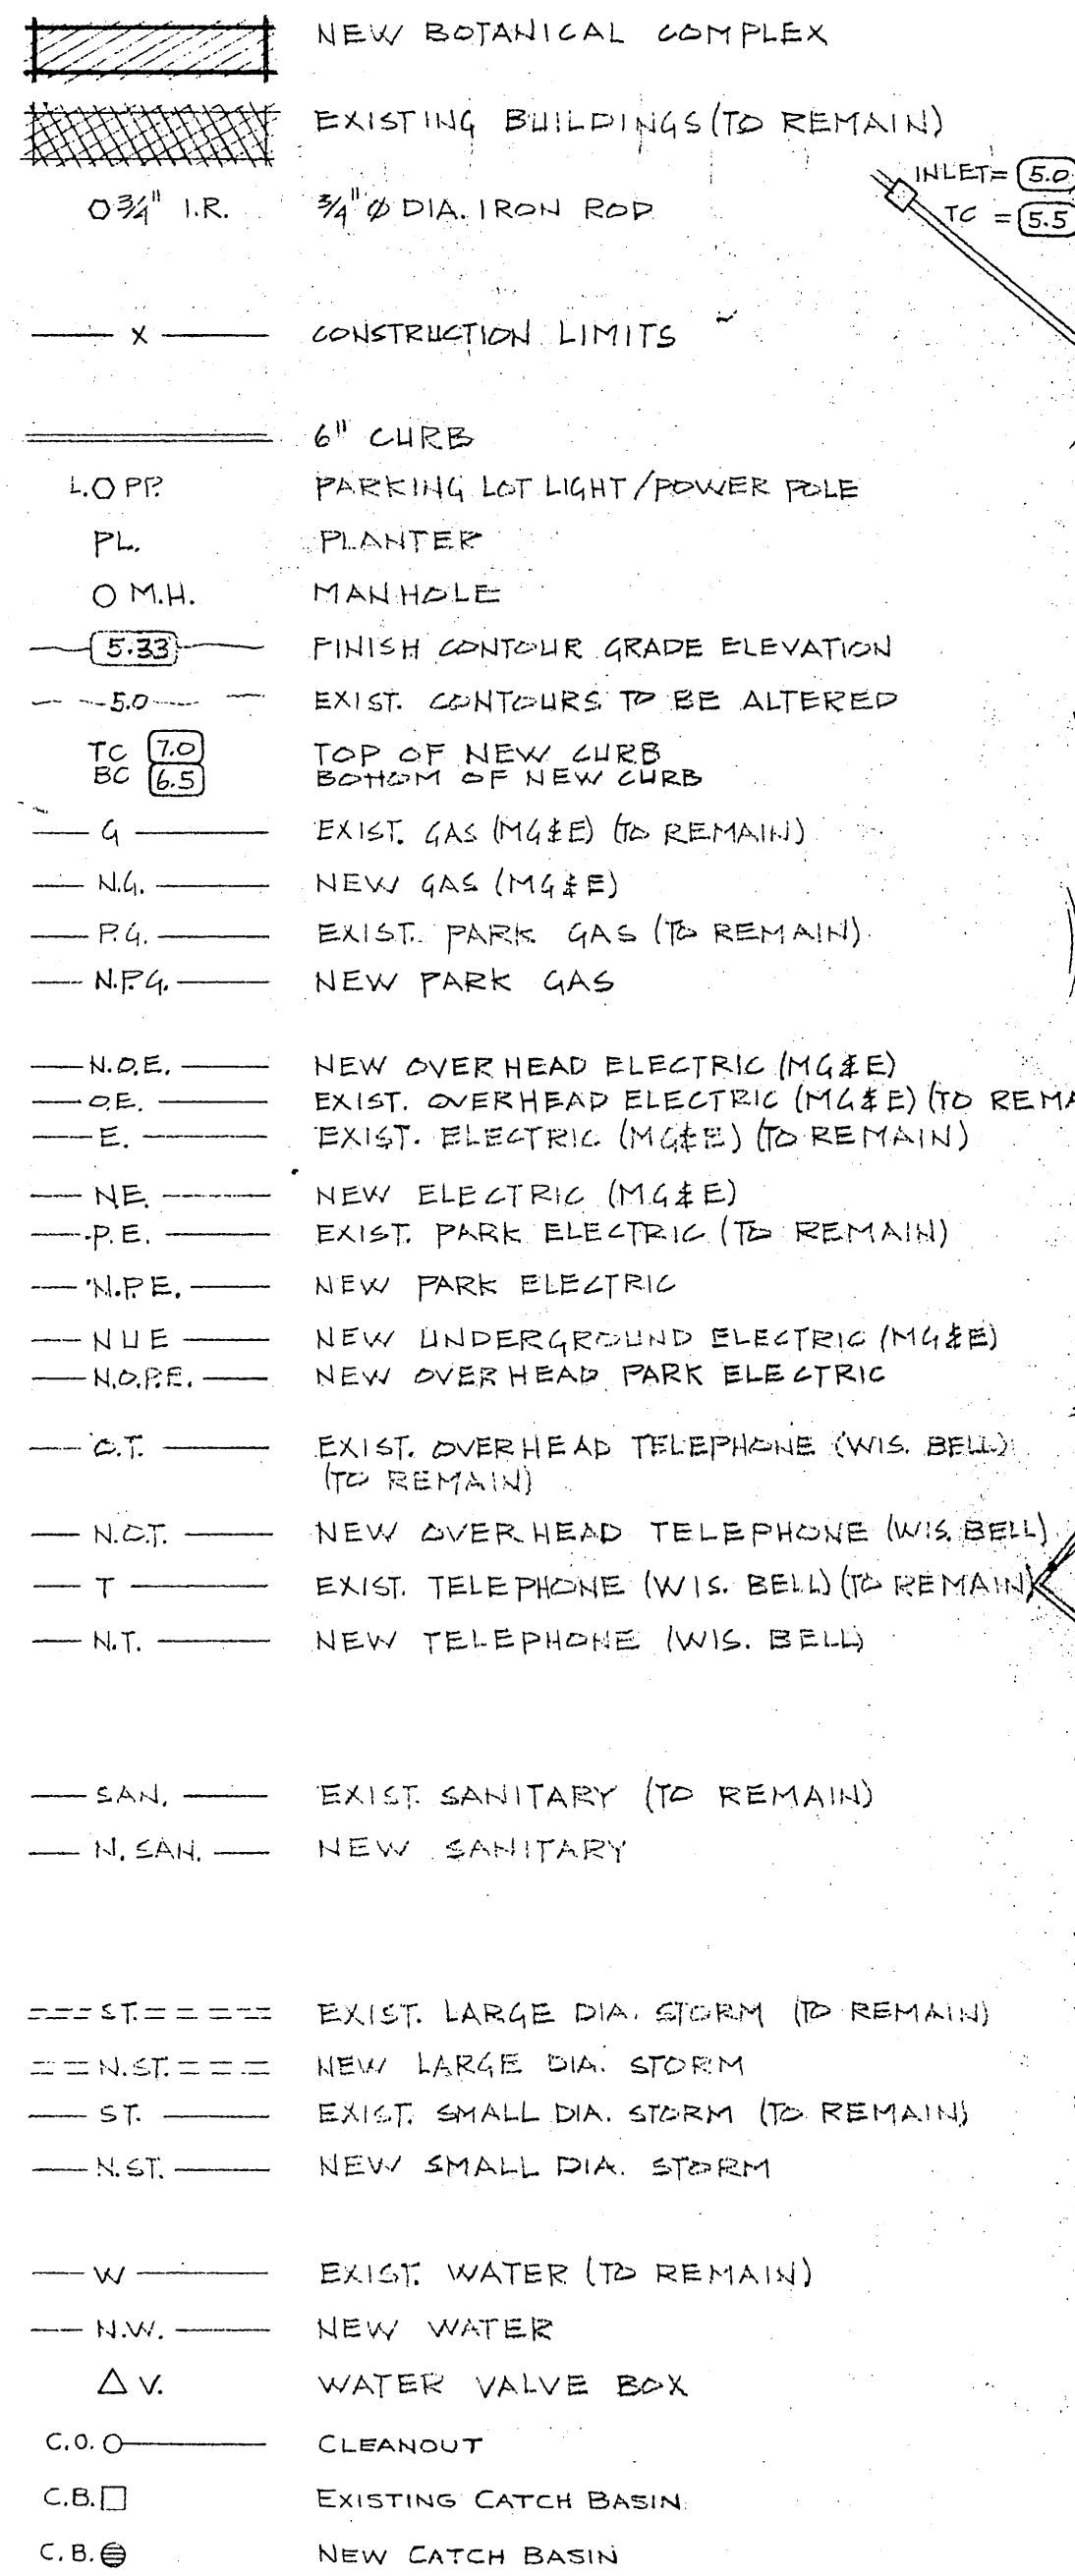 NEW BOTANICAL COMPLEX
EXISTING BUILDINGS (TO REMAIN)
INLET= 5.0
TC = 5.5
3/4" I.R. 3/4" Ø DIA. IRON ROD
X CONSTRUCTION LIMITS
6" CURB
L.O P.P. PARKING LOT LIGHT/POWER POLE
PL. PLANTER
O M.H. MANHOLE
5.33 FINISH CONTOUR GRADE ELEVATION
5.0 EXIST. CONTOURS TO BE ALTERED
TC 7.0 TOP OF NEW CURB
BC 6.5 BOTTOM OF NEW CURB
G EXIST. GAS (MG&E) (TO REMAIN)
N.G. NEW GAS (MG&E)
P.G. EXIST. PARK GAS (TO REMAIN)
N.P.G. NEW PARK GAS
N.O.E. NEW OVERHEAD ELECTRIC (MG&E)
O.E. EXIST. OVERHEAD ELECTRIC (MG&E) (TO REMA
E. EXIST. ELECTRIC (MG&E) (TO REMAIN)
N.E. NEW ELECTRIC (MG&E)
P.E. EXIST. PARK ELECTRIC (TO REMAIN)
N.P.E. NEW PARK ELECTRIC
NUE NEW UNDERGROUND ELECTRIC (MG&E)
N.O.P.E. NEW OVERHEAD PARK ELECTRIC
O.T. EXIST. OVERHEAD TELEPHONE (WIS. BELL)
(TO REMAIN)
N.O.T. NEW OVERHEAD TELEPHONE (WIS. BELL)
T EXIST. TELEPHONE (WIS. BELL) (TO REMAIN)
N.T. NEW TELEPHONE (WIS. BELL)
SAN. EXIST. SANITARY (TO REMAIN)
N. SAN. NEW SANITARY
ST. EXIST. LARGE DIA. STORM (TO REMAIN)
N.ST. NEW LARGE DIA. STORM
ST. EXIST. SMALL DIA. STORM (TO REMAIN)
N.ST. NEW SMALL DIA. STORM
W EXIST. WATER (TO REMAIN)
N.W. NEW WATER
V. WATER VALVE BOX
C.O. CLEANOUT
C.B. EXISTING CATCH BASIN
C.B. NEW CATCH BASIN